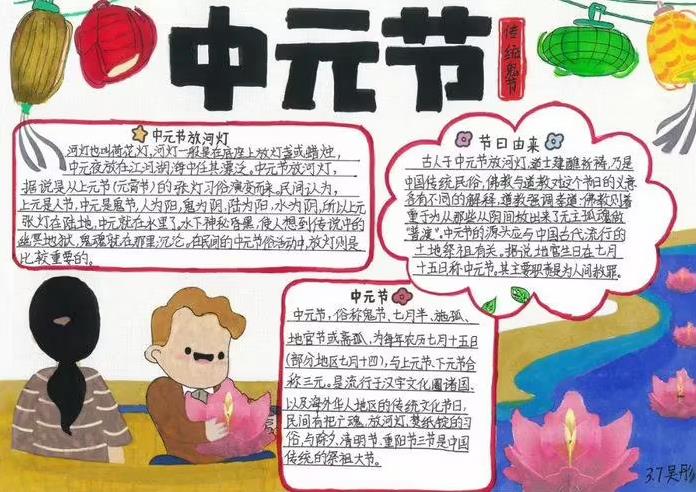 中元节
传统鬼节
中元节放河灯
河灯也叫荷花灯,河灯一般是在底座上放灯盏或蜡烛,
中元夜放在江河湖海中任其漂泛。中元节放河灯,
据说是从上元节(元宵节)的张灯习俗演变而来。民间认为,
上元是人节,中元是鬼节,人为阳,鬼为阴,陆为阳,水为阴,所以上元
张灯在陆地,中元就在水里了。水下神秘昏黑,使人想到传说中的
幽冥地狱,鬼魂就在那里沉沦。在民间的中元节俗活动中,放灯则是
比较重要的。
节日由来
古人于中元节放河灯,道士建醮祈祷,乃是
中国传统民俗,佛教与道教对这个节日的义意
各有不同的解释,道教强调孝道;佛教则着
重于为从那些从阴间放出来了无主孤魂做
“普渡”。中元节的源头应与中国古代流行的
土地祭祖有关。据说地官生日在七月
十五日称中元节,其主要职责是为人间救罪。
中元节
中元节,俗称鬼节、七月半、施孤、
地官节或斋孤,为每年农历七月十五日
(部分地区七月十四),与上元节、下元节合
称三元。是流行于汉字文化圈诸国、
以及海外华人地区的传统文化节日,
民间有把亡魂、放河灯、焚纸锭的习
俗,与除夕、清明节、重阳节三节是中国
传统的祭祖大节。
3.7吴彤